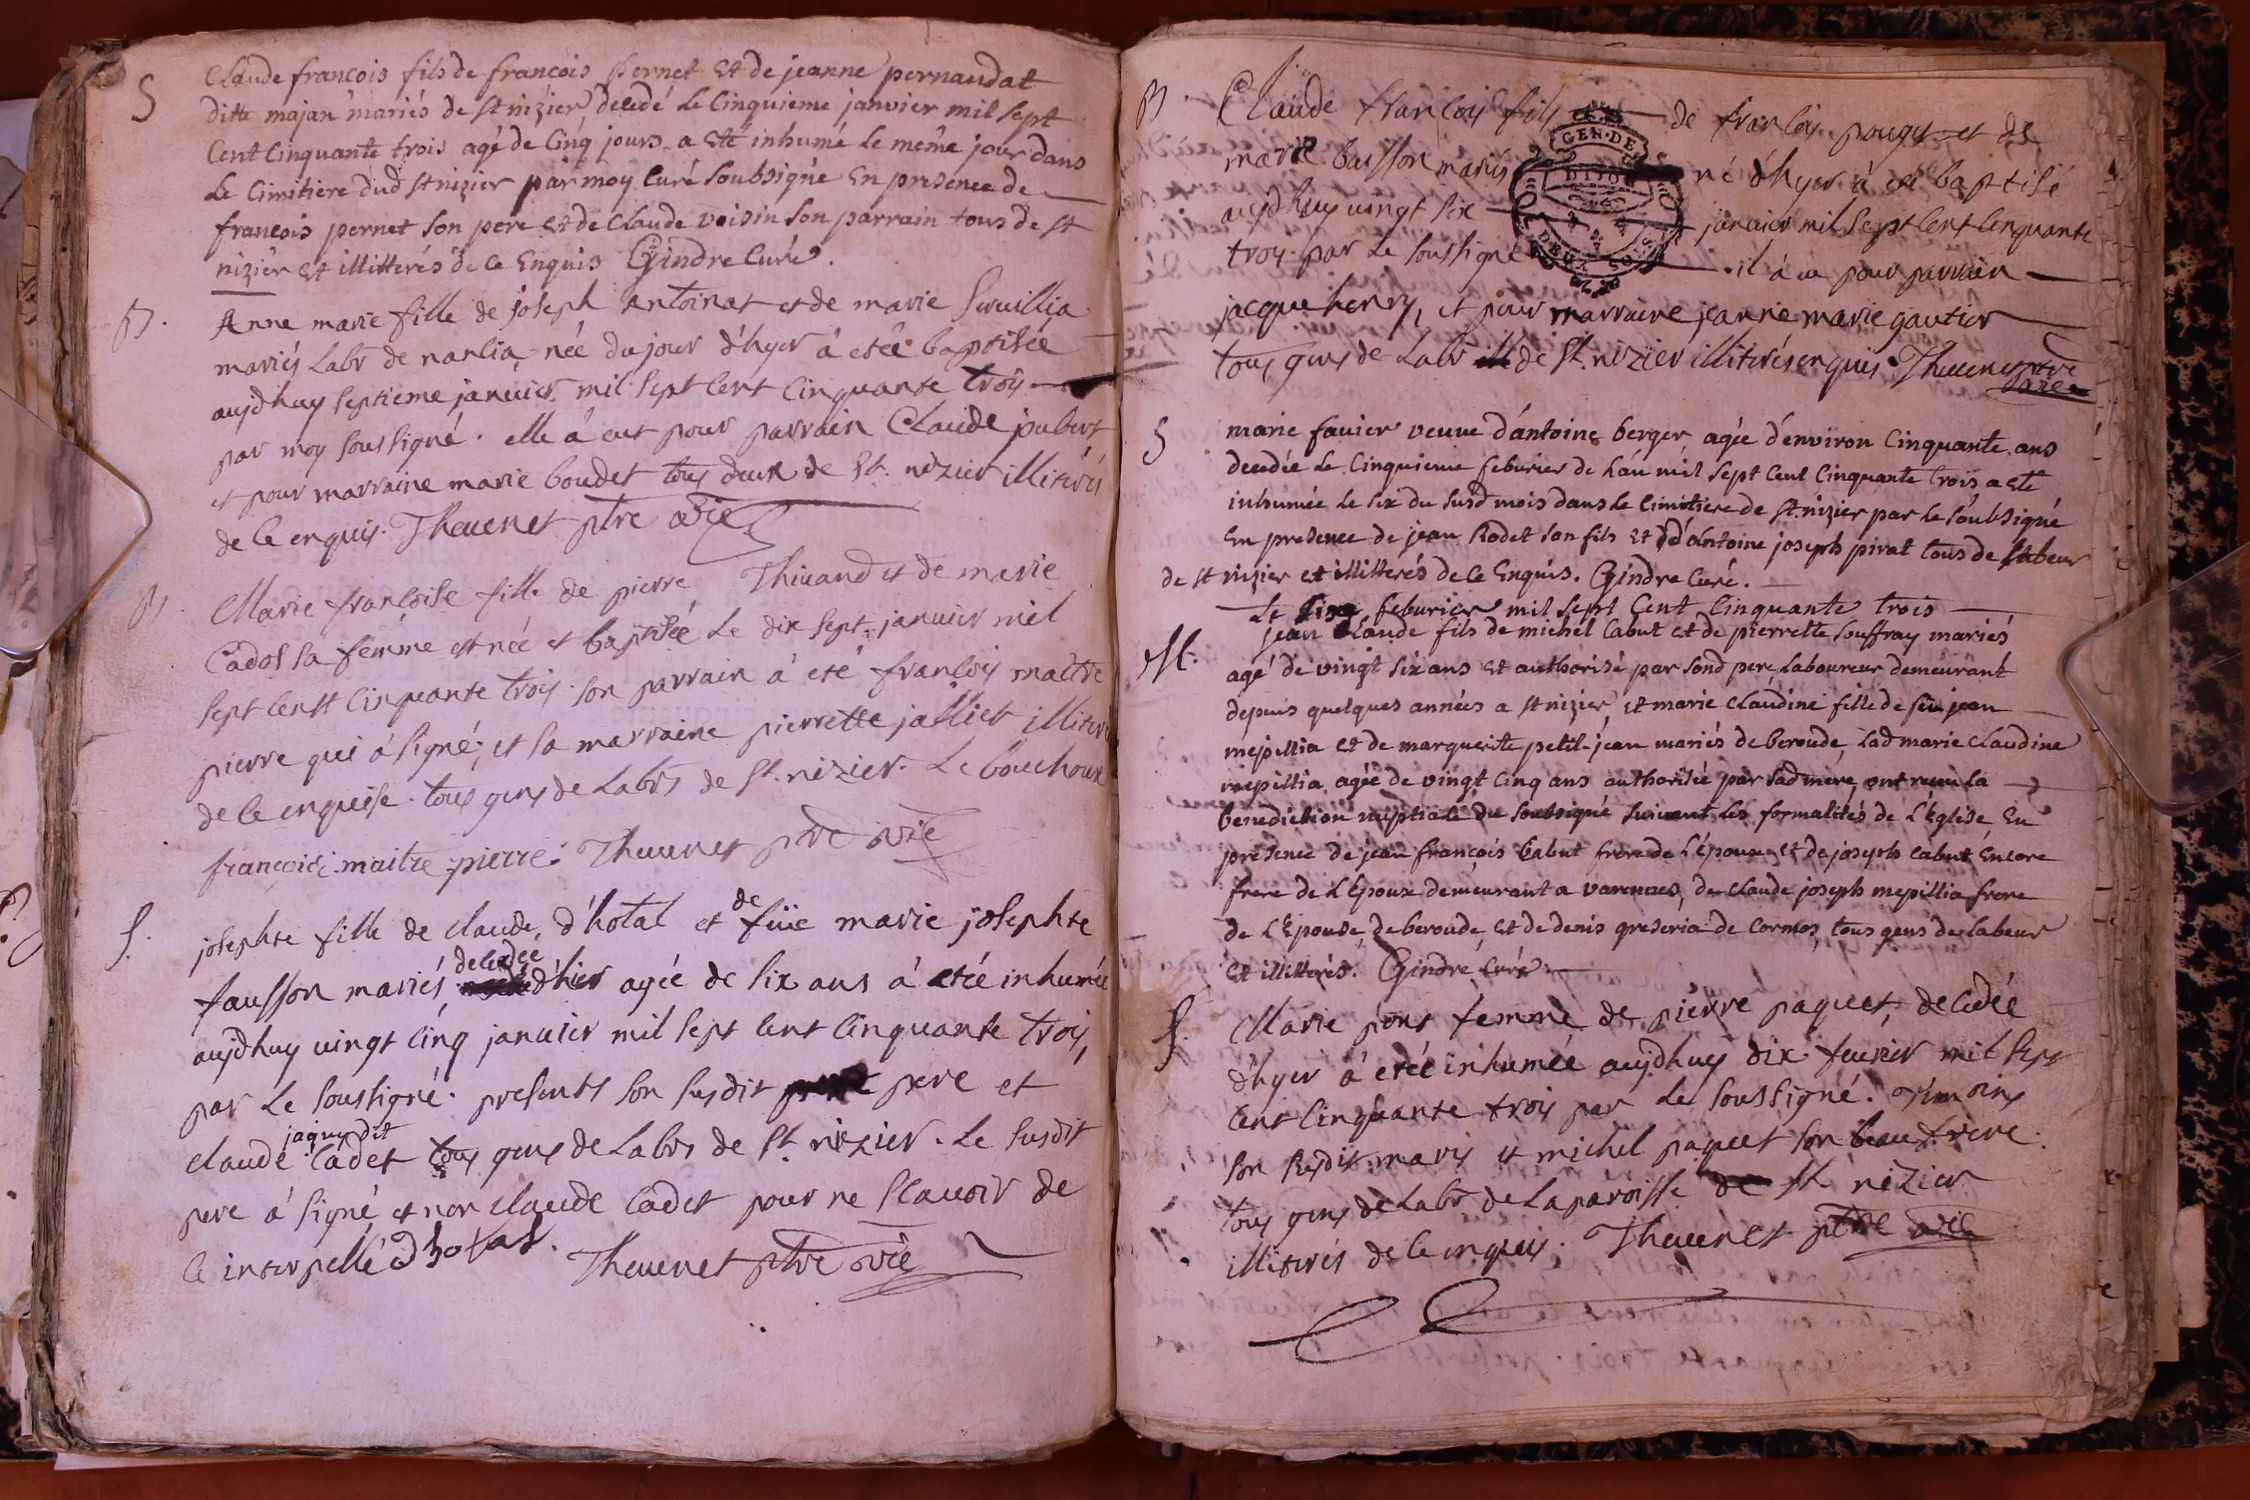 S
Claude francois fils de francois pernet et de jeanne pernaudat
ditte majan mariés de st nizier, decedé le cinquieme janvier mil sept
cent cinquante trois agé de cinq jours a eté inhumé le même jour dans
le cimitiere dud st nizier par moy curé soubsigné en presence de
francois pernet son pere et de claude voisin son parrain tous de st
nizier et illitterés de ce enquis Gindre curé.
B.
Anne marie fille de joseph antoinat et de marie
mariés labr de nanlia née du jour d'hyer à etée baptisée
aujdhuy septieme janvier mil sept cent cinquante trois
par moy soussigné. elle à eut pour parrain Claude jubert
et pour marraine marie boudet tous deux de St. nizier illitérés
de ce enquis. Theuenet ptre vic
B.
Marie francoise fille de pierre Thiuand et de marie
Cadot sa femme est née et baptisée le dix sept janvier mil
sept cent cinquante trois. son parrain à eté francois maitre
pierre qui à signé, et sa marraine pierrette jalliet illiteré
de ce enquise. tous gens de labr de St. nizier. Le bouchoux
francois maitre pierre. Theuenet ptre vic
S.
josephte fille de claude d'hotal et de füe marie josephte
fausson mariés decedée d'hier agée de six ans à etée inhumée
aujdhuy vingt cinq janvier mil sept cent cinquante trois,
par le soussigné. presents son susdit pere et
claude jaquy dit Cadet tous gens de labr de St. nizier. le susdit
pere à signé et non claude Cadet pour ne scauoir de
ce interpellé dhotal. Theuenet ptre vic
B
Claude francois fils de francois pouget et de
marie buisson mariés né d'hyer à eté baptisé
aujdhuy vingt six janvier mil sept cent cinquante
trois par le soussigné. il à eu pour parrain
GEN. DE
DEUX SOLS
jacque henry, et pour marraine jeanne marie gautier
tous gens de labr de St. nizier illiterés enquis. Theuenet ptre
vic
S
marie fauier veuve d'antoine berger agée d'environ cinquante ans
decedée le cinquieme feburier de l'an mil sept cent cinquante trois a eté
inhumée le six du susd mois dans le cimitiere de st nizier par le soubsigné
en presence de jean Rodet son fils et d'antoine joseph pirat tous de labeur
de st nizier et illitterés de ce enquis. Gindre curé.
Le cinq feburier mil sept cent cinquante trois
M.
jean claude fils de michel cabut et de pierrette souffray mariés
agé de vingt six ans et authorisé par sond pere, laboureur demeurant
depuis quelques années a st nizier, et marie claudine fille de feu jean
mepillia et de marguerite petit-jean mariés de beroude, lad marie claudine
mepillia agée de vingt cinq ans authorisée par sad mere, ont receu la
benediction nuptiale du soubsigné suivant les formalités de l'église en
présence de jean francois cabut frere de l'époux et de joseph cabut encore
frere de l'Epoux demeurant a varennes, de claude joseph mepillia frere
de l'Epouse, de beroude, et de denis greseria de cormos, tous gens de labeur
et illitterés. Gindre curé
S.
Marie pont femme de pierre paquet, decedée
d'hyer à etée inhumée aujdhuy dix feurier mil sept
cent cinquante trois par le soussigné. Témoins
son susdit maris et michel paquet son beaufrere.
tous gens de labr de la paroisse de St. nizier
illiterés de ce enquis. Theuenet ptre vic